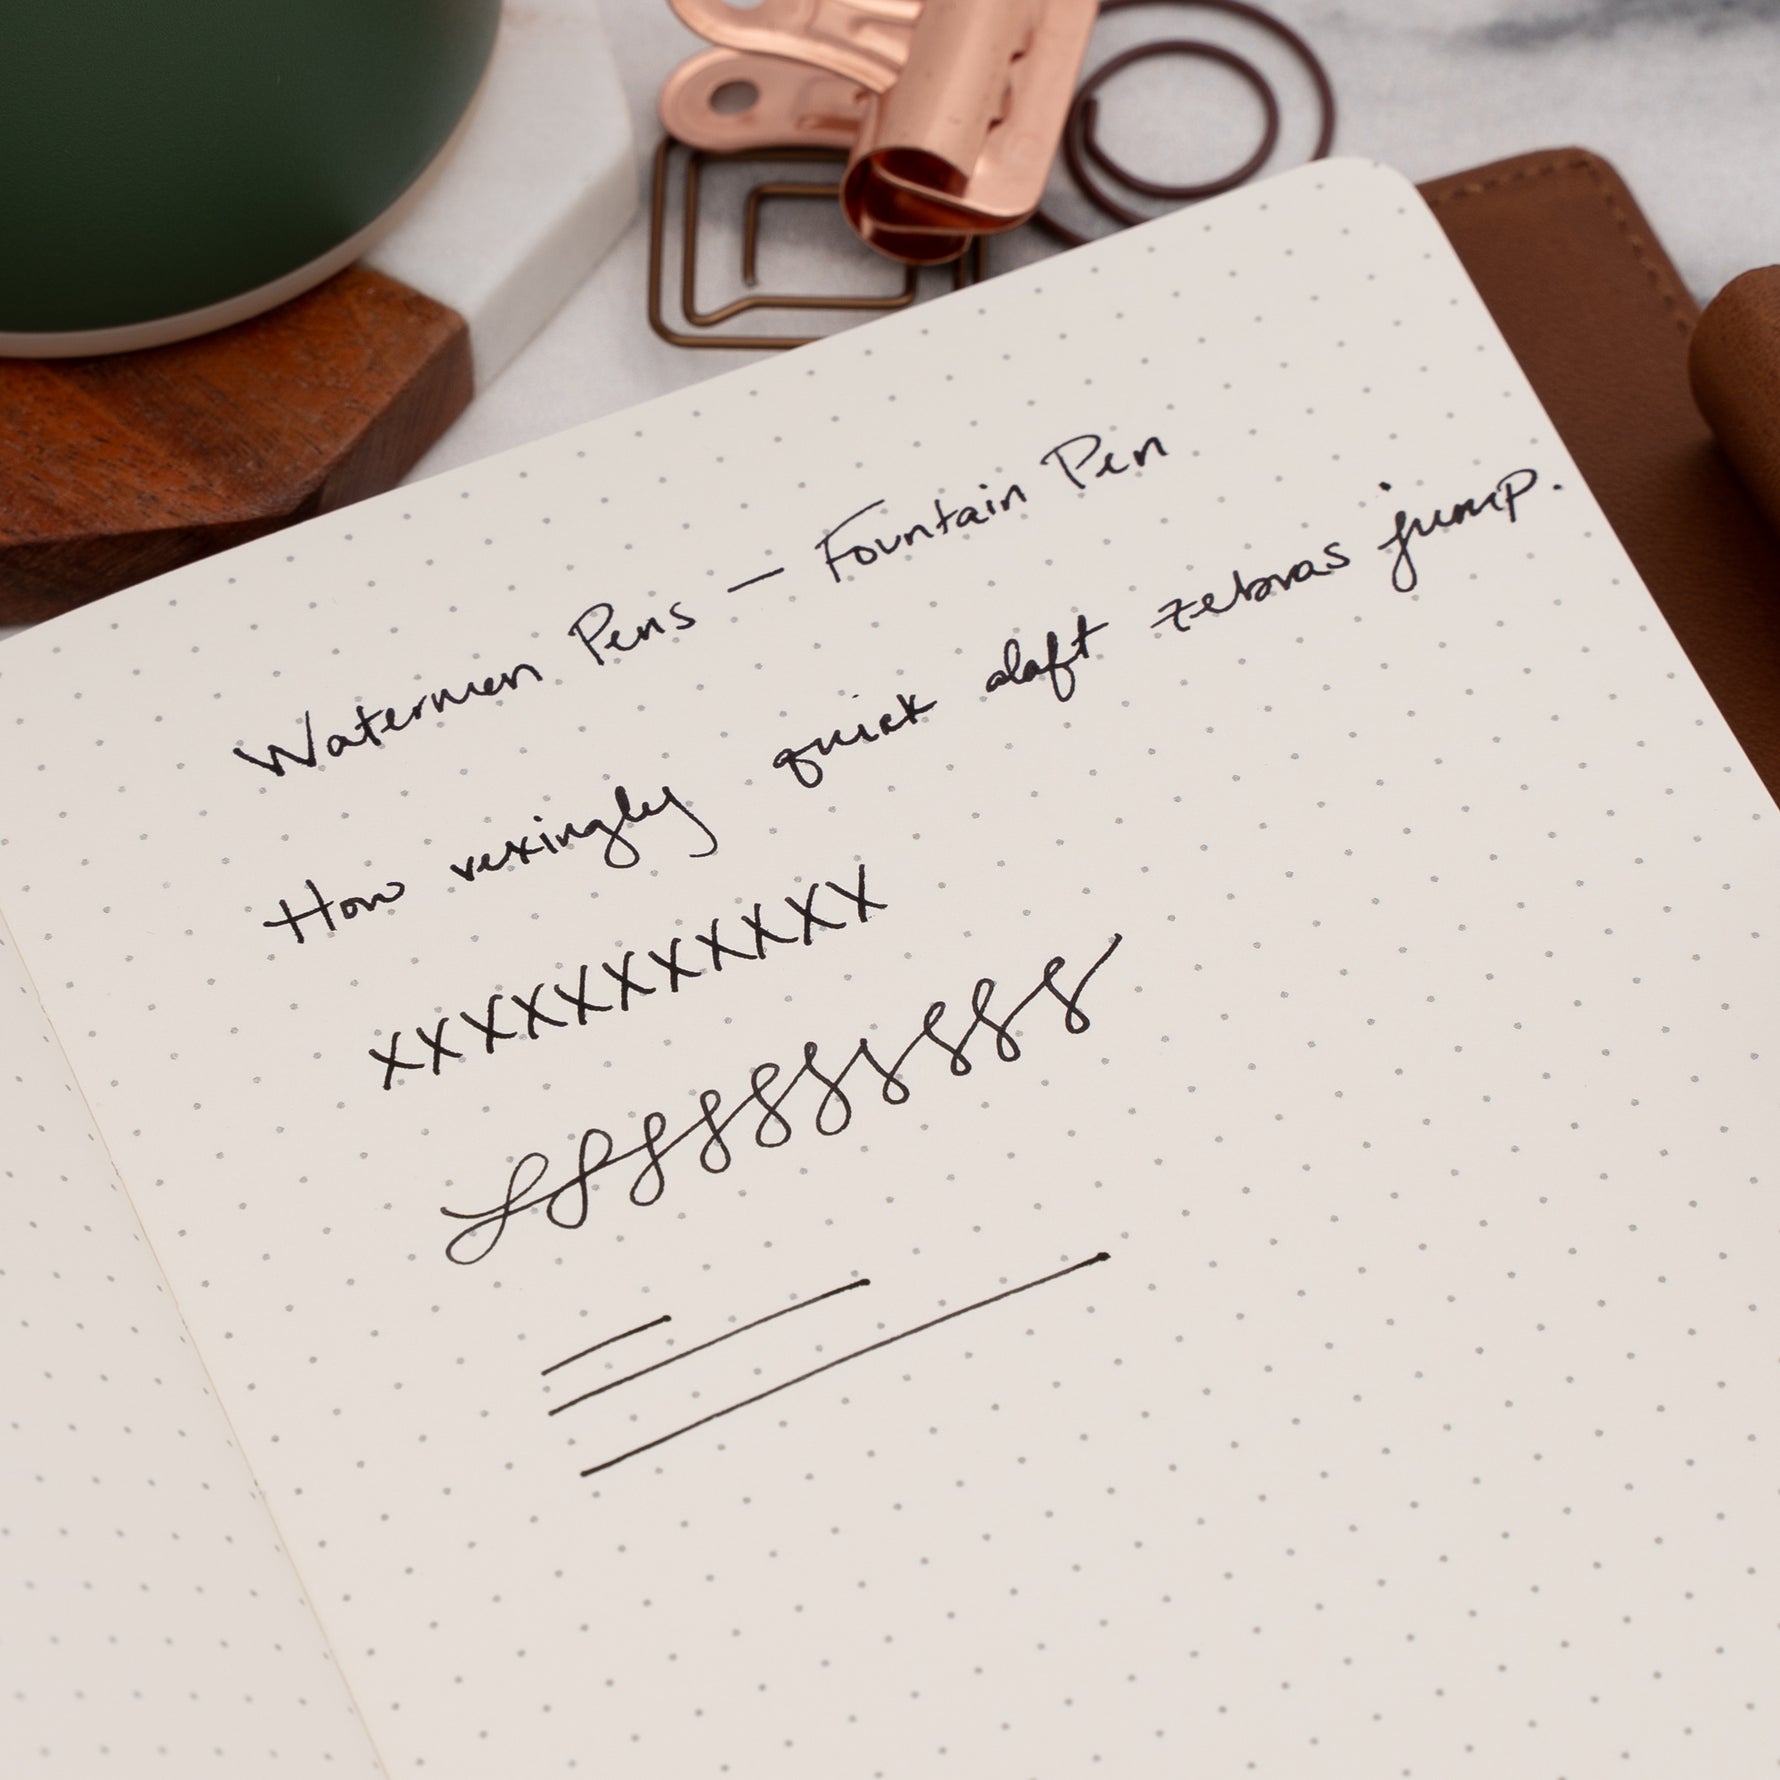 Watermen Pens — Fountain Pen
How vexingly quick daft zebras jump.
XXXXXXXXXXX